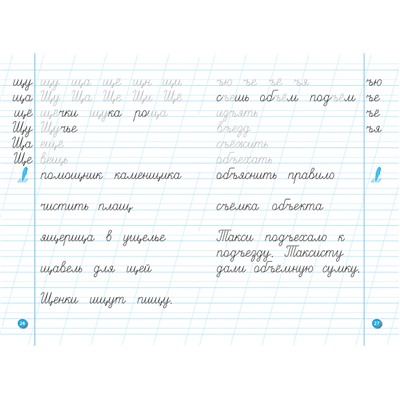 щу щу щу ща щё щн щи
ща Щу Ща Ще Щи Щё
щё щёчки щука роща
Щу Щучье
Ща ещё
Ще вещь
помощник каменщика
чистить площ
ящерица в ущелье
щавель для щей
Щенки ищут пищу.
26
ъю ъе ъё ъя ъю
съешь объём подъём ъе
изъять ъё
въезд ъя
съёжить
объехать
объяснить правило
съёмка объекта
Такси подъехало к
подъезду. Таксисту
дали объёмную сумку.
27